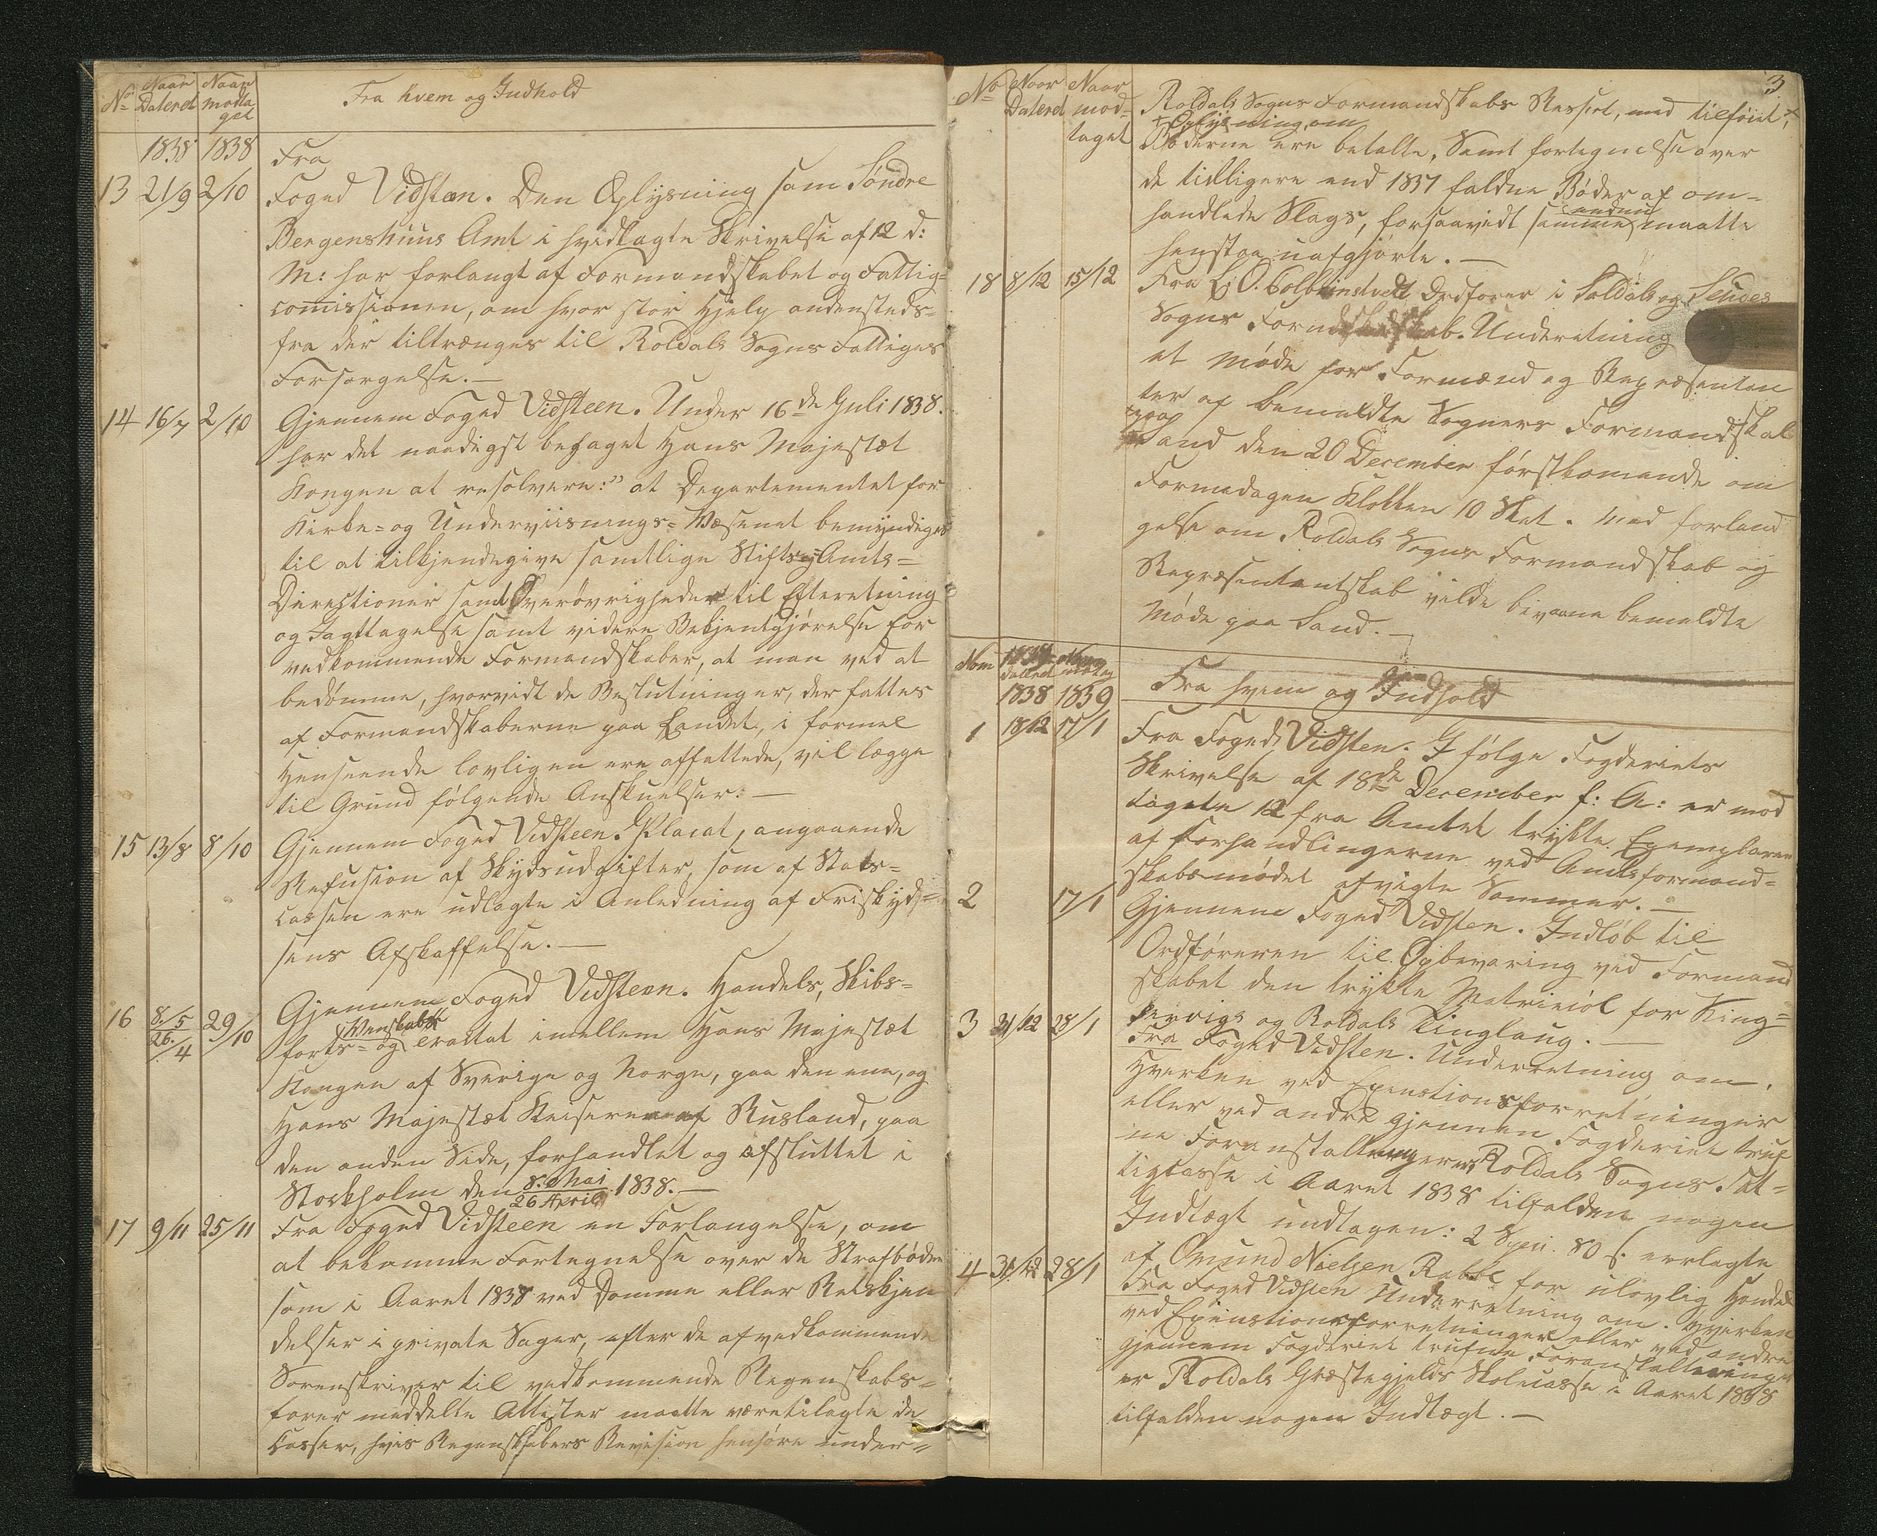 No Naar Dateret Naar modtaget Fra hvem og Indhold
1838 1838 Fra
13 21/9 2/10 Foged Vidsteen. Den Oplysning som Søndre
Bergenshuus Amt i hvidlagte Skrivelse af 12 d:
M: har forlangt af Formandskabet og Fattig=
comissionen, om hvor stor Hjelp andensteds=
fra der tiltrænges til Roldals Sogns Fattiges
Forsørgelse.—
14 16/7 2/10 Gjennem Foged Vidsteen. Under 16de Juli 1838.
har det naadigst behaget Hans Majestæt
Kongen at resolvere:" at Departementet for
Kirke= og Underviisnings=Væsenet bemyndiges
til at tilkjendegive samtlige Stifts og Amts=
Directioner samt Overøvrigheder til Efteretning
og Iagttagelse samt videre Bekjentgjørelse for
vedkommende Formandskaber, at man ved at
bedømme, hvorvidt de Beslutninger, der fattes
af Formandskaberne paa Landet, i formel
Henseende lovligen ere affattede, vil lægge
til Grund følgende Anskuelser:—
15 13/8 8/10 Gjennem Foged Vidsteen. Placat, angaaende
Refusion af Skydsudgifter, som af Stats=
cassen ere udlagte i Anledning af Friskyds=
sens Afskaffelse.—
16 8/5 26/4 29/10 Gjennem Foged Vidsteen. Handels, Skibs=
farts= og Venskabs Tractat imellem Hans Majestæt
Kongen af Sverige og Norge, paa den ene, og
Hans Majestæt Keiseren af Rusland, paa
den anden Side, forhandlet og afsluttet i
Stockholm den 8. Mai 26 April 1838.—
17 9/11 25/11 Fra Foged Vidsteen en Forlangelse, om
at bekomme Fortegnelse over de Strafbøder
som i Aaret 1838 ved Domme eller Retskjen
delser i private Sager, efter de af vedkommende
Sorenskriver til vedkommende Regenskabs=
fører meddelte Attester maatte være tilagte de
Casser, hvis Regenskabers Revision henhøre under=
3
No Naar Dateret Naar modtaget
Roldals Sogns Formandskabs Ressort, med tilføiet
+ Oplysning, om
Bøderne ere betalte, Samt fortegnelse over
de tidligere end 1837 faldne Bøder af om=
handlede Slags, forsaavidt samme endnu maatte
henstaa uafgjorte.—
18 8/12 15/12 Fra L. O. Colbeinstvedt Ordfører i Suldals og
Sogns Formandskab. Underetning
et Møde for Formænd og Repræsentan
ter af bemældte Sogners Formandskab
paa Sand den 20 December førstkomande om
Formidagen Klokken 10 Slet. med forland
gelse om Roldals Sogns Formandskab og
Repræsentantskab vilde bivaane bemeldte
Møde paa Sand.—
Nom dateret Naar modtag
1838 1839 Fra hvem og Indhold
1 18/12 17/1 Fra Foged Vidsten. Ifølge Fogderiets
Skrivelse af 18de December f: A: er mod
tagete 12 fra Amtet trykte Exemplarer
af Forhandlingerne ved Amtsformand=
skabsmødet afvigte Sommer.—
2 17/1 Gjennem Foged Vidsten. Indløb til
Ordføreren til Opbevaring ved Formand
skabet den trykte Matricul for King=
servigs og Roldals Tinglaug.—
3 31/12 28/1 Fra Foged Vidsten. Underretning om,
Hverken ved Execustionsforretninger
eller ved andre gjennem Fogderiet truf
ne Foranstaltninger er Roldals Sogns Fat=
tigcasse i Aaret 1838 tilfalden nogen
Indtægt undtagen: 2 Spd. 80 s. erlagte
af Omund Nielsen Rabbe for ulovlig Handel
4 31/12 28/1 Fra Foged Vidsteen Underretning om. Hverken
ved Execustionsforretninger eller ved andre
gjennem Fogderiet trufne Foranstaltninger
er Roldals Præstegjelds Skolecasse i Aaret 1838
tilfalden nogen Indtægt.—